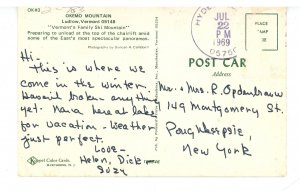 OKEMO MOUNTAIN
Ludlow, Vermont 05149
"Vermont's Family Ski Mountain"
Preparing to unload at the top of the chairlift amid
some of the East's most spectacular panoramas.
JUL
22
PM
1969
POST CARD
Address
PLACE
STAMP
HERE
Hi-
This is where we
come in the winter.
Haven't broken anything
yet. Have here at lake
for vacation - weather
just perfect.
Love-
Helen, Dick
Suzy
Mr. & Mrs. R. Opdenbrow
149 Montgomery St.
Poughkeepsie,
New York
Koppel Color Cards